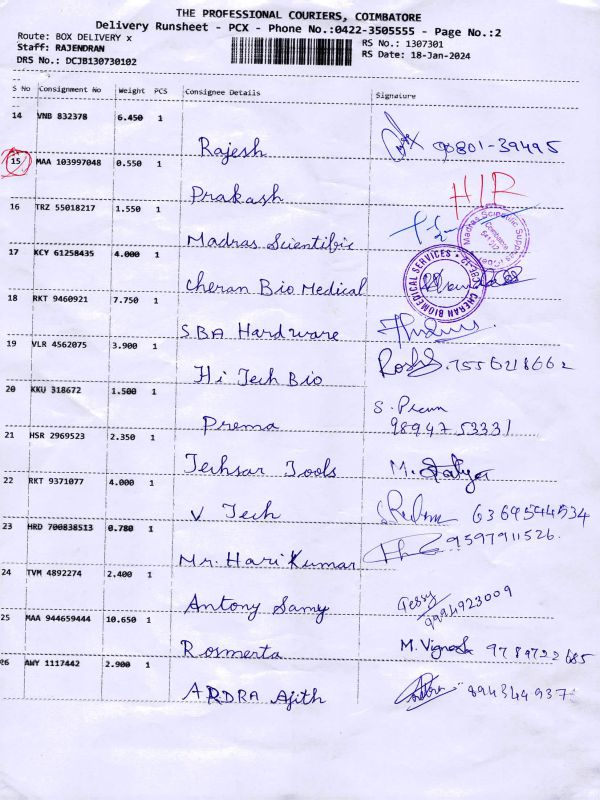 THE PROFESSIONAL COURIERS, COIMBATORE
Delivery Runsheet - PCX - Phone No.:0422-3505555 - Page No.:2
Route: BOX DELIVERY x
RS No.: 1307301
Staff: RAJENDRAN
RS Date: 18-Jan-2024
DRS No.: DCJB130730102
S No Consignment No Weight PCS Consignee Details Signature
14 VNB 832378 6.450 1
Rajesh 90801-39495
15 MAA 103997048 0.550 1
Prakash H/R
16 TRZ 55018217 1.550 1
Madras Scientific
Madras Scientific Supplies
17 KCY 61258435 4.000 1
Cheran Bio Medical
CHERAN BIOMEDICAL SERVICES
18 RKT 9460921 7.750 1
SBA Hardware
19 VLR 4562075 3.900 1
Hi Tech Bio
20 KKU 318672 1.500 1
Prema S. Prem
98947 53331
21 HSR 2969523 2.350 1
Techsar Tools M.
22 RKT 9371077 4.000 1
V Tech 6369594534
23 HRD 700838513 0.780 1
Mr. Hari Kumar 9597911526.
24 TVM 4892274 2.400 1
Antony Samy
9994923009
25 MAA 944659444 10.650 1
Rosmerta M. Vignesh 9789722685
26 AWY 1117442 2.900 1
ARDRA Ajith